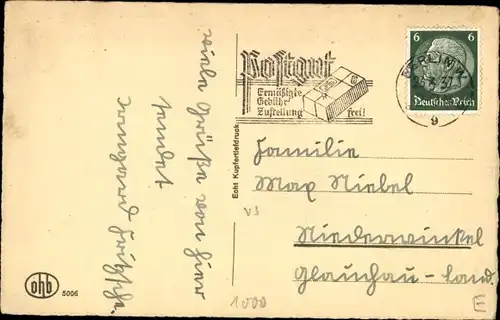 viele Grüße von hier
sendet
Irmgard Fritzsche.
Postgut
Ermäßigte
Gebühr
Zustellung frei!
6 6
Deutsches Reich
BERLIN
37
9
Echt Kupfertiefdruck
Familie
Max Niebel
Niederwinkel
Glauchau-Land.
V3
1000
E
ohb
5006